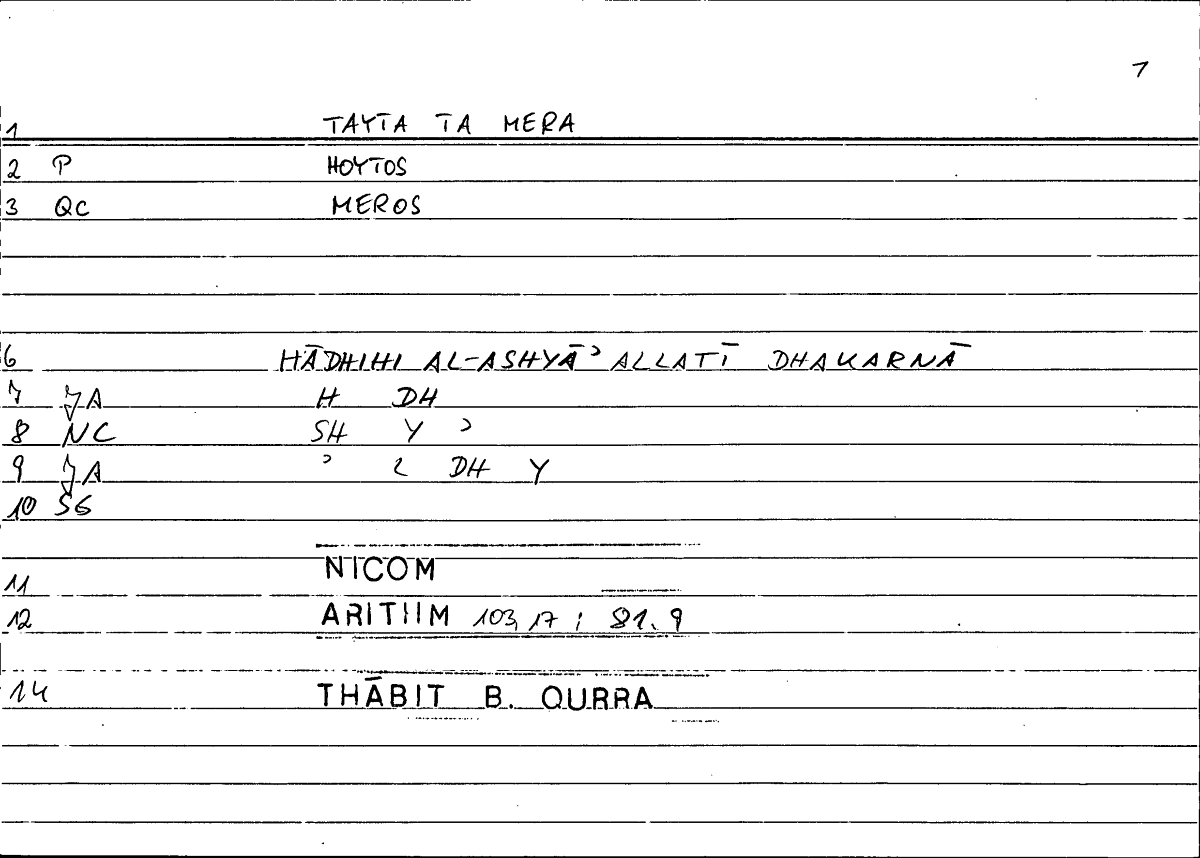 1
1 TAYTA TA MERA
2 P HOYTOS
3 QC MEROS
6 HĀDHIHI AL-ASHYĀʾ ALLATĪ DHAKARNĀ
7 JA H DH
8 NC SH Y ʾ
9 JA ʾ L DH Y
10 SG
11 NICOM
12 ARITHM 103,17 ; 81.9
14 THĀBIT B. QURRA